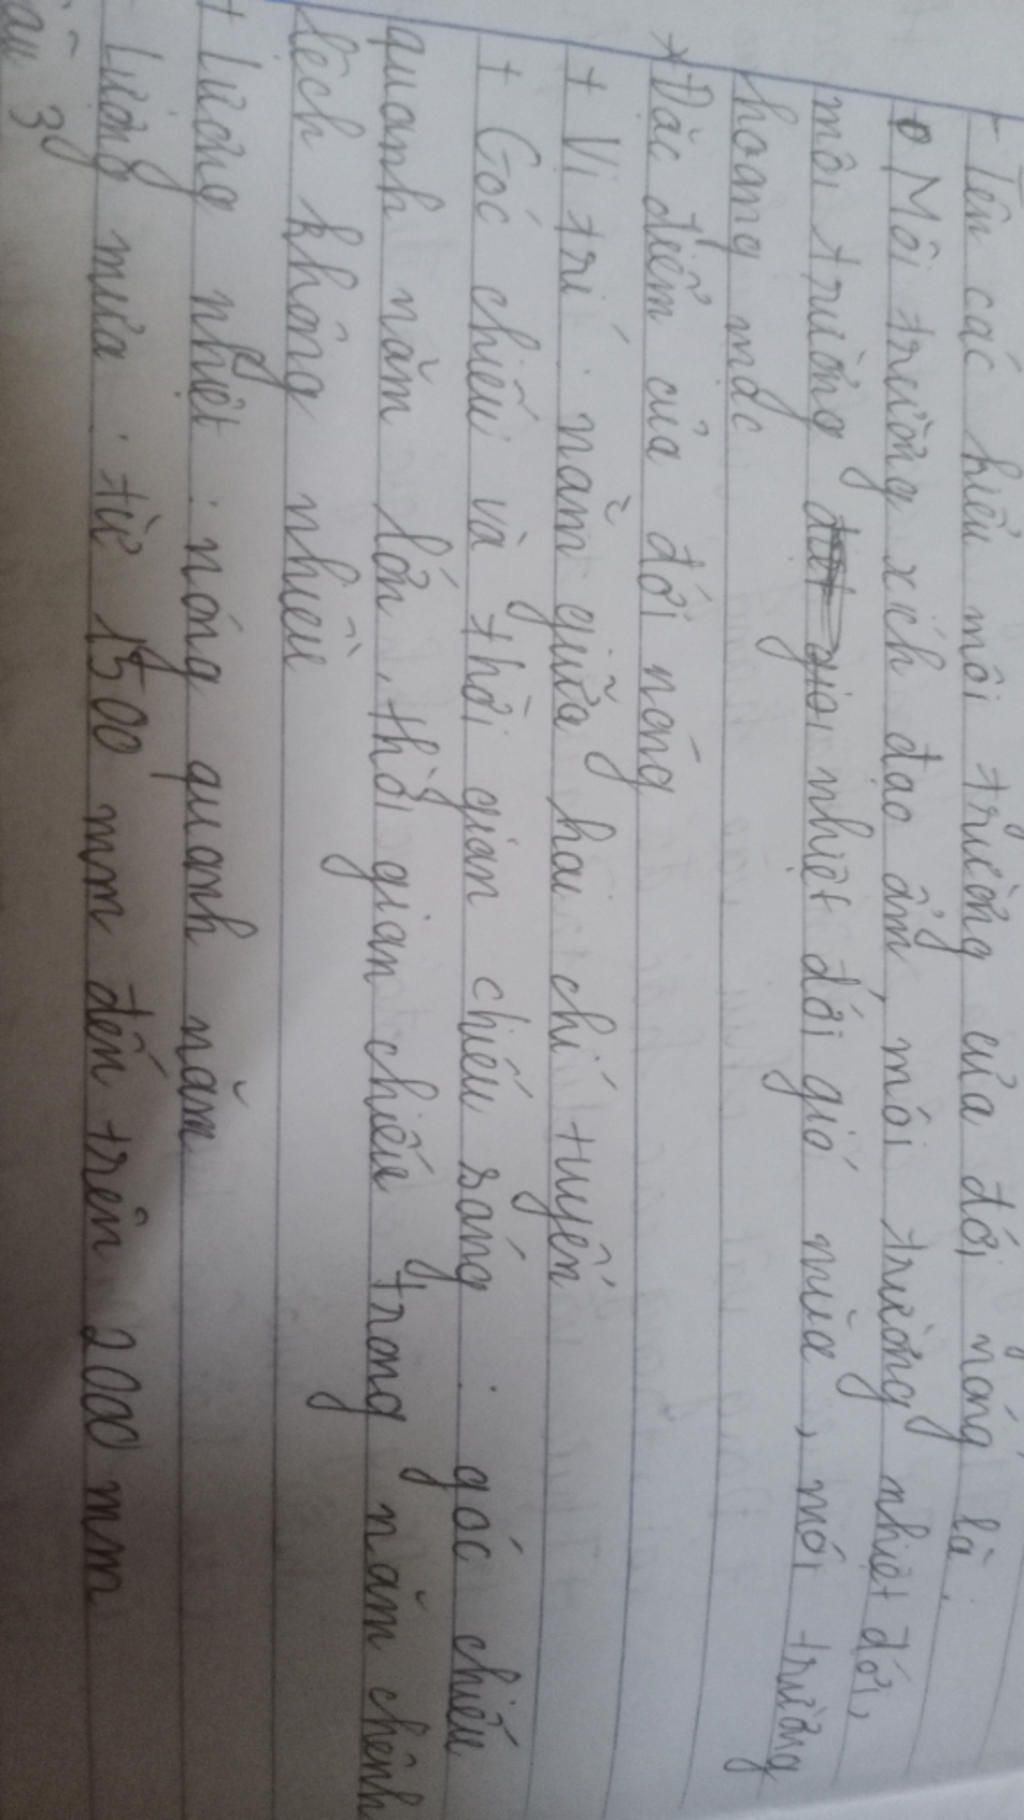 - Tên các kiểu môi trường của đới nóng là:
Môi trường xích đạo ẩm, môi trường nhiệt đới,
môi trường gioi nhiệt đới gió mùa, môi trường
hoang mạc
* Đặc điểm của đới nóng
+ Vị trí: nằm giữa hai chí tuyến
+ Góc chiếu và thời gian chiếu sáng: góc chiếu
quanh năm lớn, thời gian chiếu trong năm chênh
lệch không nhiều
+ Lượng nhiệt: nóng quanh năm
Lượng mưa: từ 1500 mm đến trên 2000 mm
3,